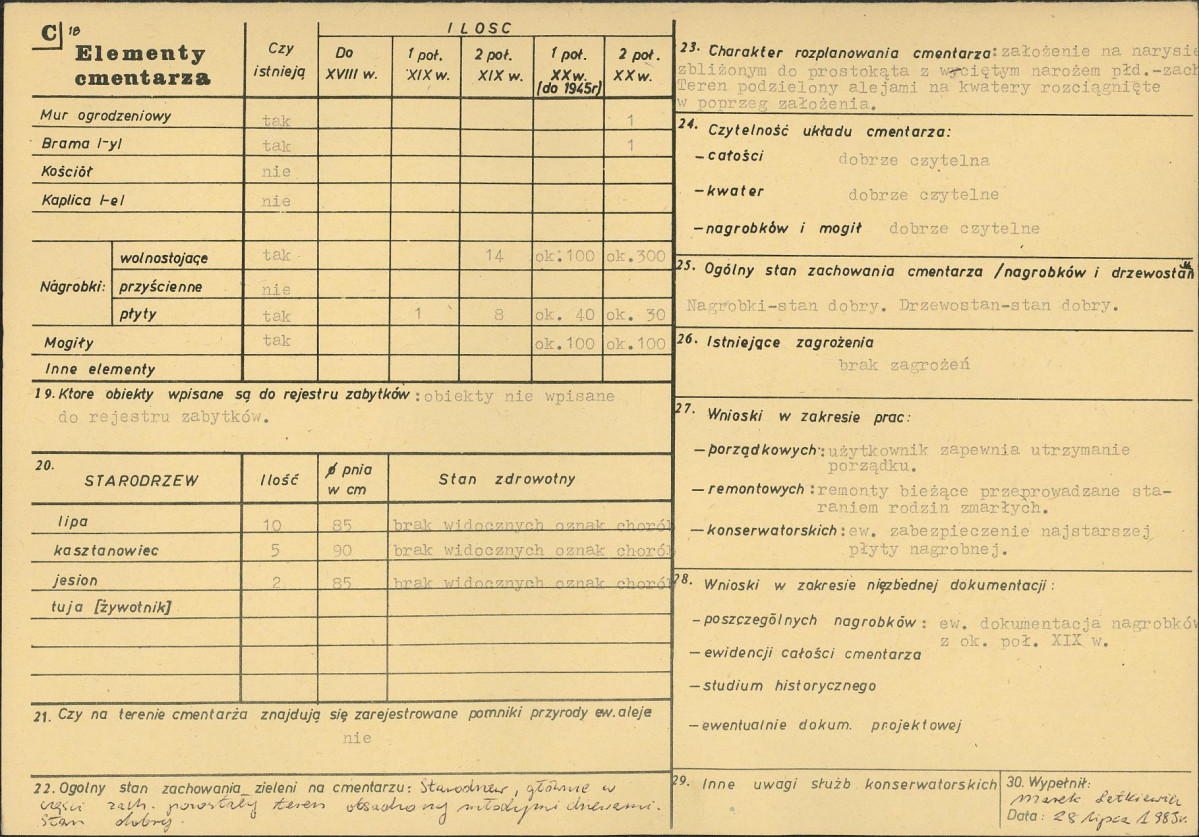 C 18
Elementy cmentarza
Czy istnieją
I L O S C
Do XVIII w.
1 poł. XIX w.
2 poł. XIX w.
1 poł. XX w. (do 1945r)
2 poł. XX w.
Mur ogrodzeniowy tak 1
Brama l-yl tak 1
Kościół nie
Kaplica l-el nie
Nagrobki:
wolnostojące tak 14 ok.100 ok.300
przyścienne nie
płyty tak 1 8 ok. 40 ok. 30
Mogiły tak ok.100 ok.100
Inne elementy
19. Ktore obiekty wpisane są do rejestru zabytków: obiekty nie wpisane
do rejestru zabytków.
20.
STARODRZEW Ilość ø pnia w cm Stan zdrowotny
lipa 10 85 brak widocznych oznak chorób
kasztanowiec 5 90 brak widocznych oznak chorób
jesion 2 85 brak widocznych oznak chorób
tuja [żywotnik]
21. Czy na terenie cmentarza znajdują się zarejestrowane pomniki przyrody ew. aleje
nie
22. Ogolny stan zachowania zieleni na cmentarzu: Starodrzew, głównie w
części zach. pozostały teren obsadzony młodymi drzewami.
Stan dobry.
23. Charakter rozplanowania cmentarza: założenie na narysie
zbliżonym do prostokąta z wyciętym narożem płd.-zach
Teren podzielony alejami na kwatery rozciągnięte
w poprzeg założenia.
24. Czytelność układu cmentarza:
– całości dobrze czytelna
– kwater dobrze czytelne
– nagrobków i mogił dobrze czytelne
25. Ogólny stan zachowania cmentarza /nagrobków i drzewostan
Nagrobki-stan dobry. Drzewostan-stan dobry.
26. Istniejące zagrożenia
brak zagrożeń
27. Wnioski w zakresie prac:
– porządkowych: użytkownik zapewnia utrzymanie
porządku.
– remontowych: remonty bieżące przeprowadzane sta-
raniem rodzin zmarłych.
– konserwatorskich: ew. zabezpieczenie najstarszej
płyty nagrobnej.
28. Wnioski w zakresie niezbędnej dokumentacji:
– poszczególnych nagrobków: ew. dokumentacja nagrobków
z ok. poł. XIX w.
– ewidencji całości cmentarza
– studium historycznego
– ewentualnie dokum. projektowej
29. Inne uwagi służb konserwatorskich
30. Wypełnił:
Marek Letkiewicz
Data: 28 lipca 1985r.